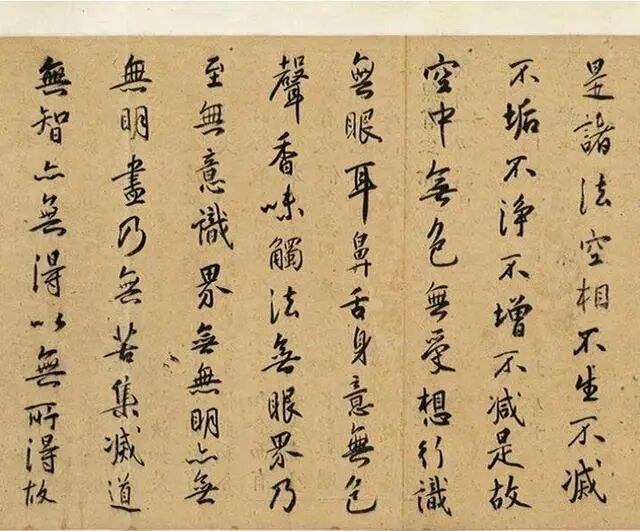 是諸法空相不生不滅
不垢不淨不增不減是故
空中無色無受想行識
無眼耳鼻舌身意無色
聲香味觸法無眼界乃
至無意識界無無明亦無
無明盡乃無苦集滅道
無智亦無得以無所得故